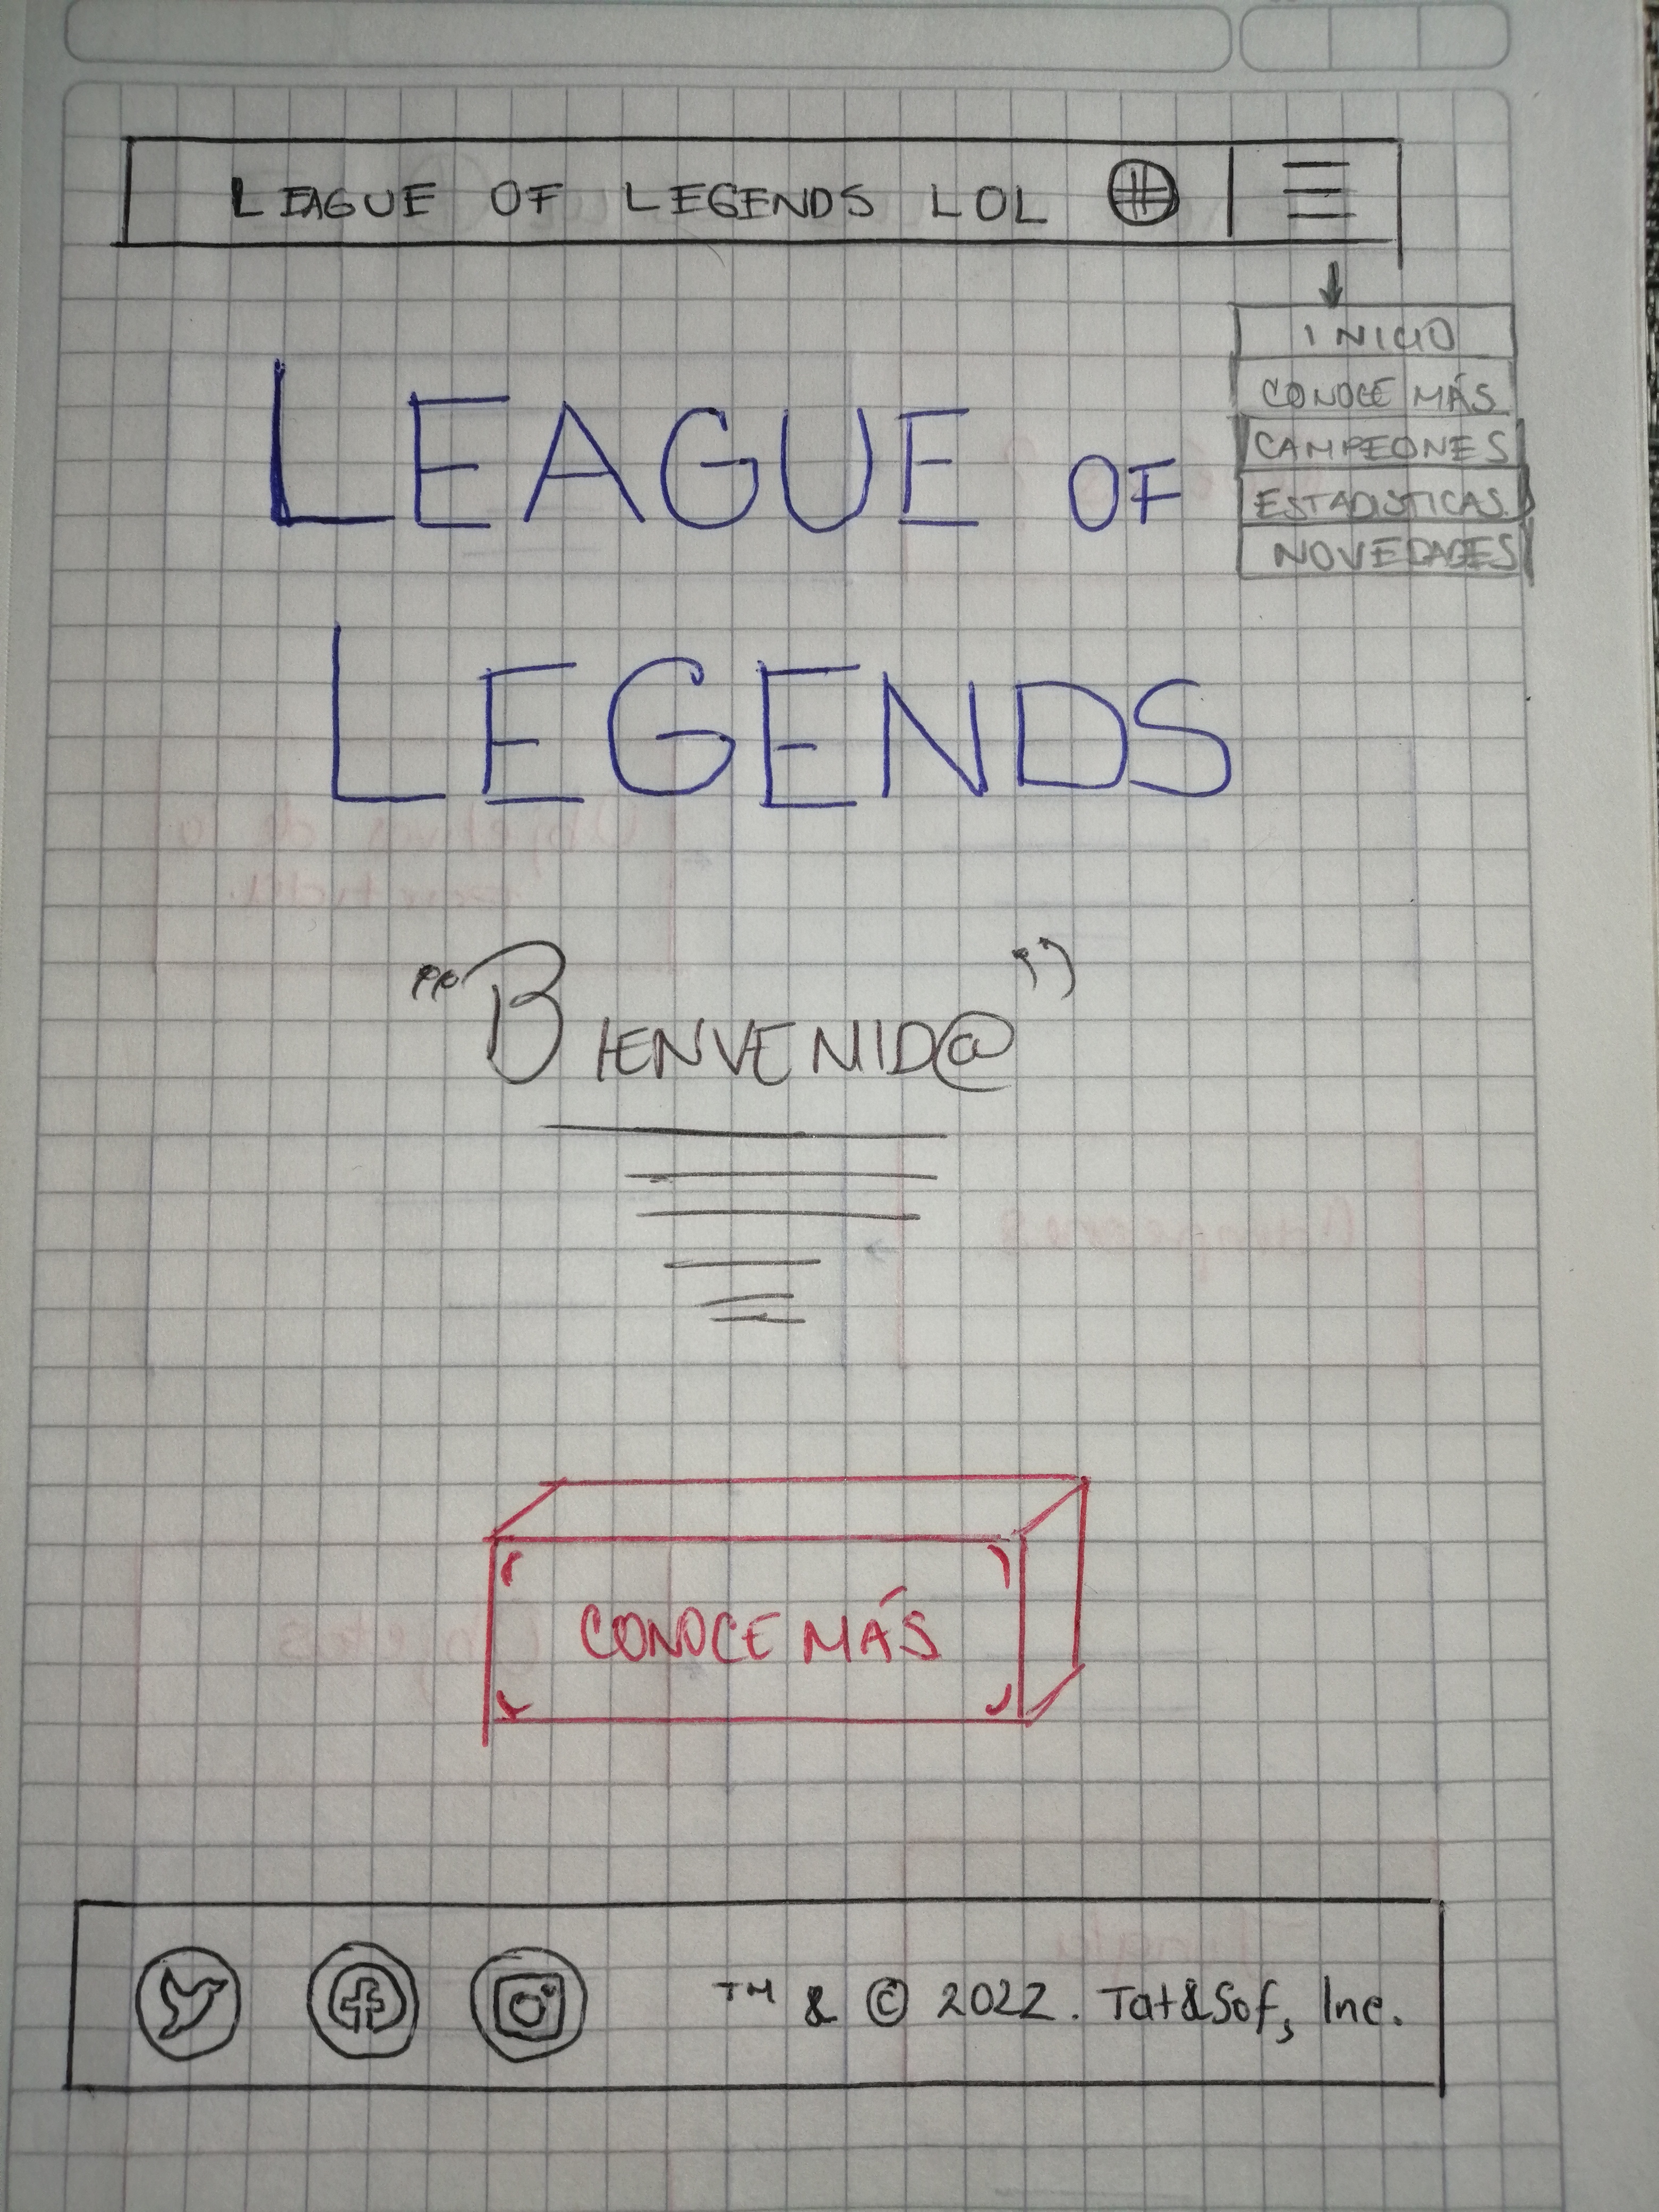 LEAGUE OF LEGENDS LOL
INICIO
CONOCE MÁS
CAMPEONES
ESTADISTICAS
NOVEDADES
LEAGUE OF
LEGENDS
"BIENVENID@"
CONOCE MÁS
TM & © 2022. Tat&Sof, Inc.